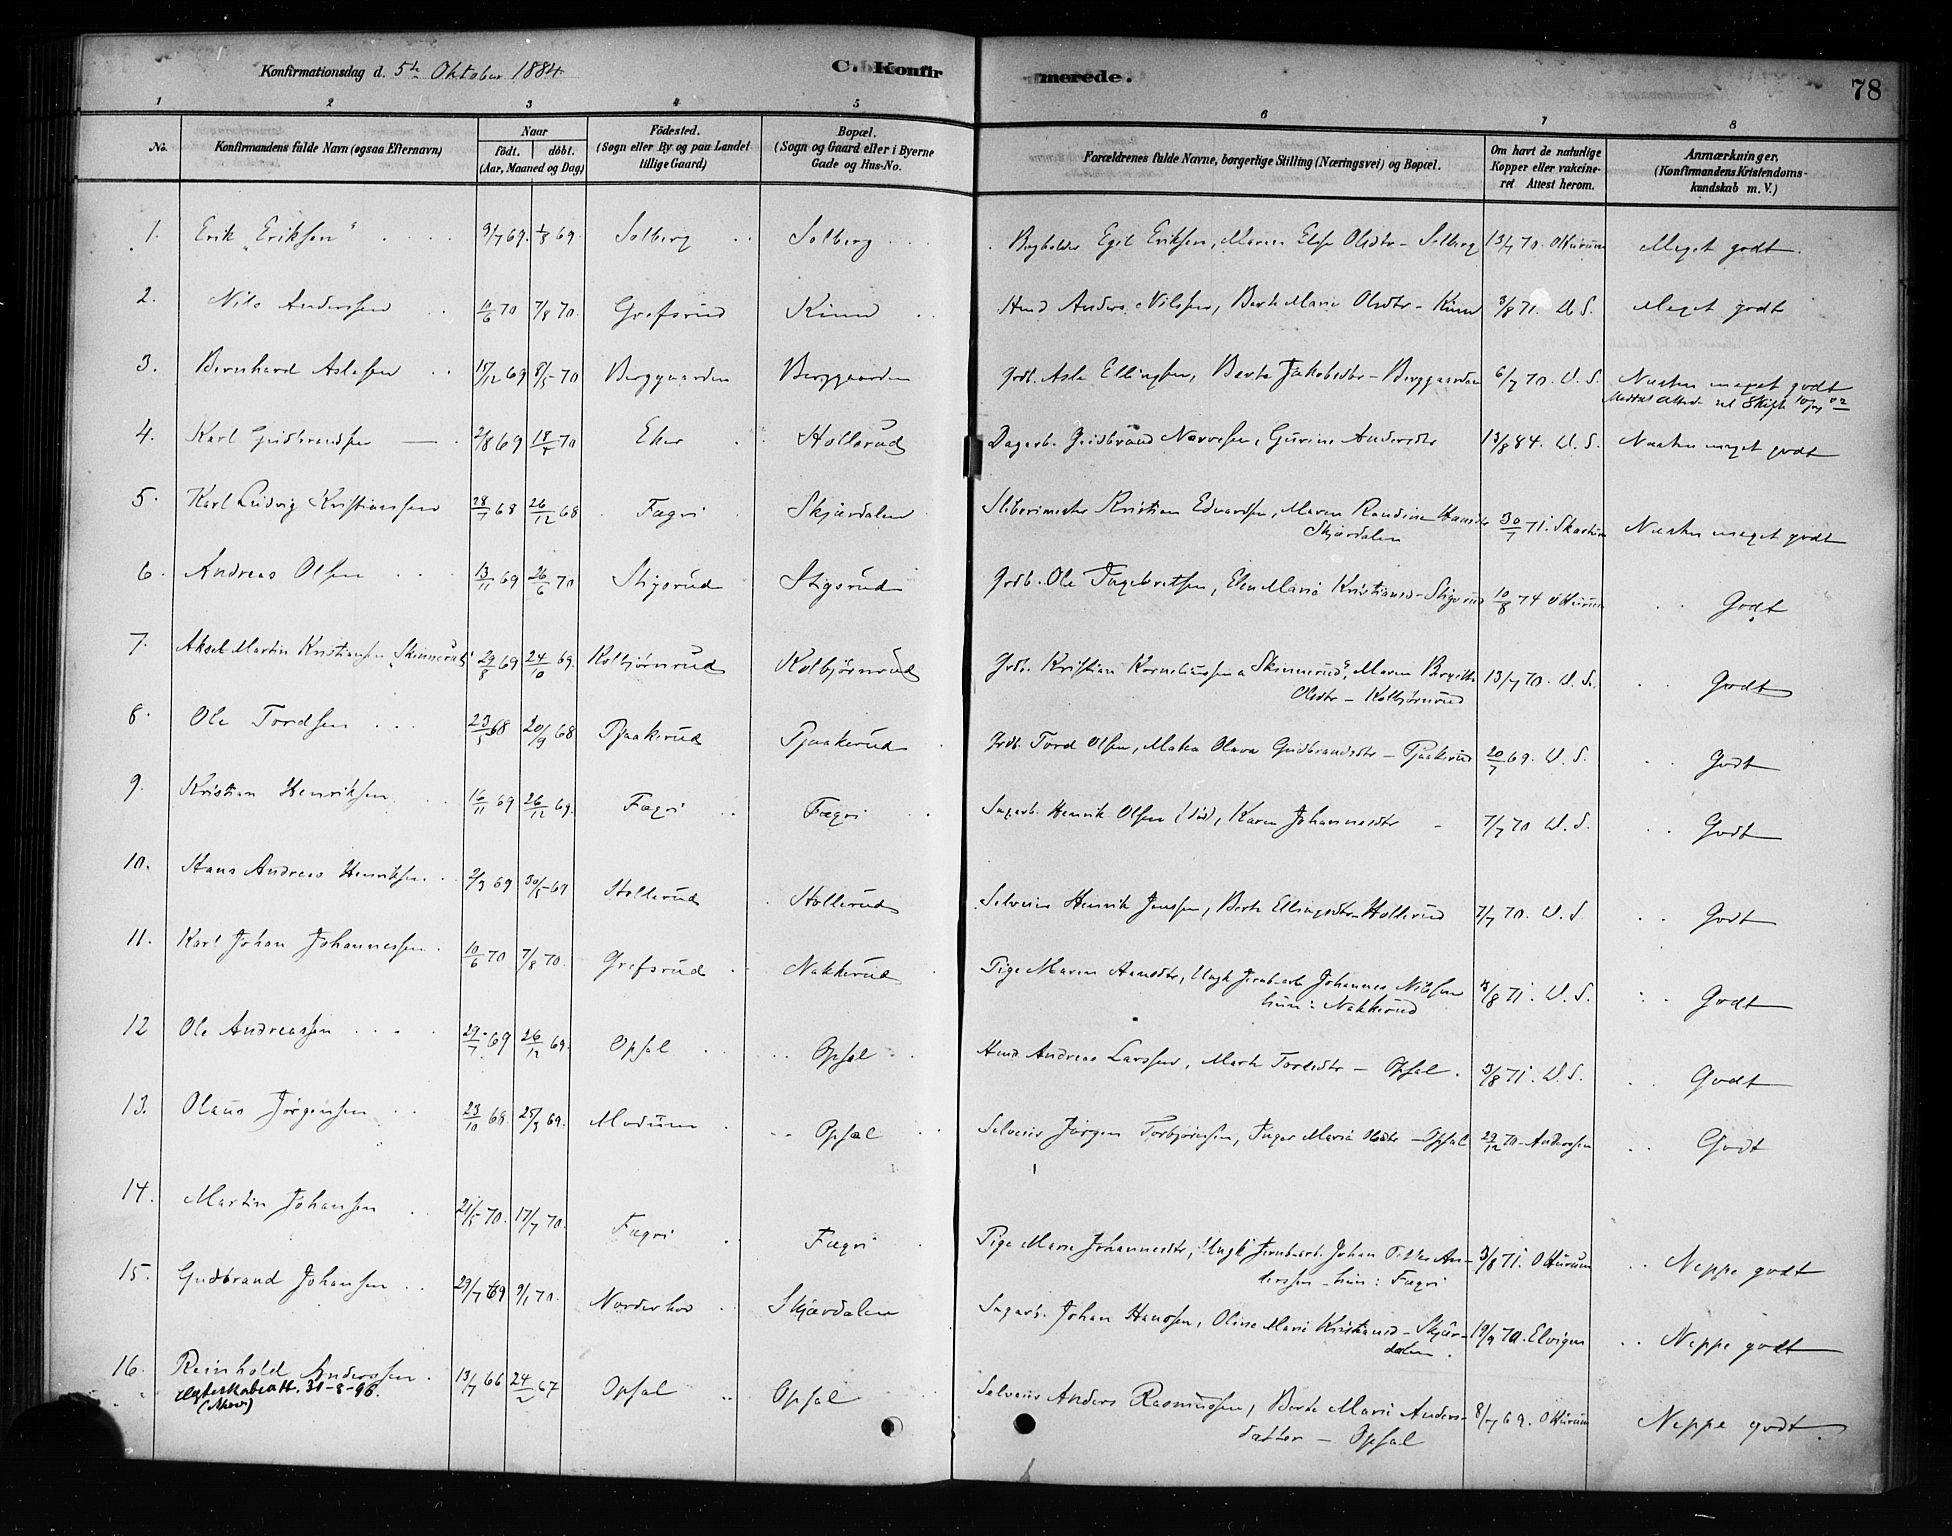 Konfirmationsdag d. 5te Oktober 1884
C. Konfirmerede.
78
1 2 3 4 5 6 7 8
No.
Konfirmandens fulde Navn (ogsaa Efternavn)
Naar
födt. döbt.
(Aar, Maaned og Dag)
Födested.
(Sogn eller By og paa Landet
tillige Gaard)
Bopæl.
(Sogn og Gaard eller i Byerne
Gade og Hus-No.
Forældrenes fulde Navne, borgerlige Stilling (Næringsvei) og Bopæl.
Om havt de naturlige
Kopper eller vakcine-
ret Attest herom.
Anmærkninger.
(Konfirmandens Kristendoms-
kundskab m. V.)
1. Erik "Eriksen" 9/7 69. 1/8 69. Solberg Solberg Egil Eriksen, Maren Elise Olsdtr - Solberg 13/7 70. Meget godt.
2. Nils Anderssen 10/6 70 7/8 70. Grefsrud Hmd Anders Nilssen, Berte Marie Olsdtr - 3/8 71. U. S. Meget godt
3. Bernhard Aslesen 15/12 69 8/5 70 Berggaarden Berggaarden Grdb. Asle Ellingsen, Berte Jakobsdtr - Berggaarden 6/7 70. U. S. Næsten meget godt
4. Karl Gudbrandsen 2/8 69 18/4 70 Eker Hollerud Dagarb. Gudbrand Narvesen, Gurine Andersdtr 13/8 84. U. S. Næsten meget godt
5. Karl Ludvig Kristianssen 28/7 68 26/12 68 Fægri Skjærdalen Sliberimester Kristian Edvardsen, Maren Randine Hansdtr 30/7 71. Næsten meget godt
Skjærdalen
6. Andreas Olsen 13/11 69 26/6 70 Stigsrud Stigsrud Grdb. Ole Ingebretsen, Elen Maria Kristiansd - Stigsrud 10/8 74 Godt
7. Aksel Martin Kristiansen "Skinnerud" 29/8 69 24/10 69. Kolbjørnrud Kolbjørnrud Grdb. Kristian Korneliussen "Skinnerud", Maren Birgitte 13/7 70. U. S. Godt
Olsdtr - Kolbjørnrud
8. Ole Tordsen 23/5 68 20/9 68 Pjaakerud Pjaakerud Grdb. Tord Olsen, Mathea Olava Gudbrandsdtr - Pjaakerud 20/7 69. U. S. Godt
9. Kristian Henriksen 16/11 69 26/12 69. Fægri Fægri Sagarb. Henrik Olsen (død), Karen Johannesdtr - 7/7 70 U. S. Godt
10. Hans Andreas Henriksen 2/3 69 30/5 69 Hollerud Hollerud Selveier Henrik Jenssen, Berte Ellingsdtr - Hollerud 7/7 70. U. S Godt
11. Karl Johan Johannessen 10/6 70 7/8 70. Grefsrud Nakkerud Pige Maren Hansdtr, Ungk Jernbarb. Johannes Nilssen 3/8 71. U. S. Godt
hun: Nakkerud
12 Ole Andreassen 29/7 69 26/12 69. Opsal Opsal Hmd Andreas Larssen, Marte Toresdtr - Opsal. 3/8 71. U. S. Godt
13. Olaus Jørgensen 23/10 68 25/3 69. Modum Opsal Selveier Jørgen Torbjørnsen, Inger Maria Olsdtr - Opsal 29/12 70 - Anderssen Godt
14. Martin Johansen 21/5 70. 17/7 70. Fægri Fægri Pige Marie Johannesdtr, Ungk Jernbarb. Johan Petter An- 3/8 71. Neppe godt
derssen - hun: Fægri
15. Gudbrand Johansen 29/7 69 9/1 70. Norderhov Skjærdalen Sagarb. Johan Hanssen, Oline Marie Kristiansd - Skjær- 19/9 70. Elvigen Neppe godt
dalen.
16. Reinhold Anderssen 13/7 66 24/2 67 Opsal Opsal Selveier Anders Rasmussen, Berte Marie Anders- 8/7 69. Neppe godt.
datter - Opsal
31-8-96.